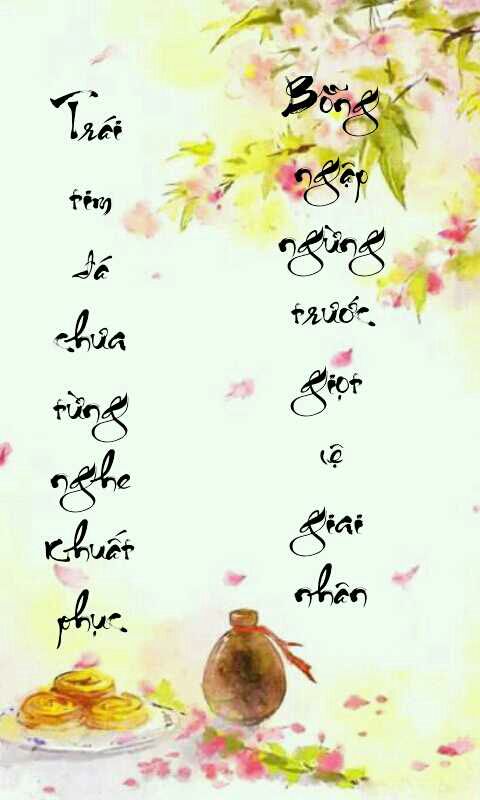 Trái
tim
đá
chưa
từng
nghe
khuất
phục
Bỗng
ngập
ngừng
trước
giọt
lệ
giai
nhân